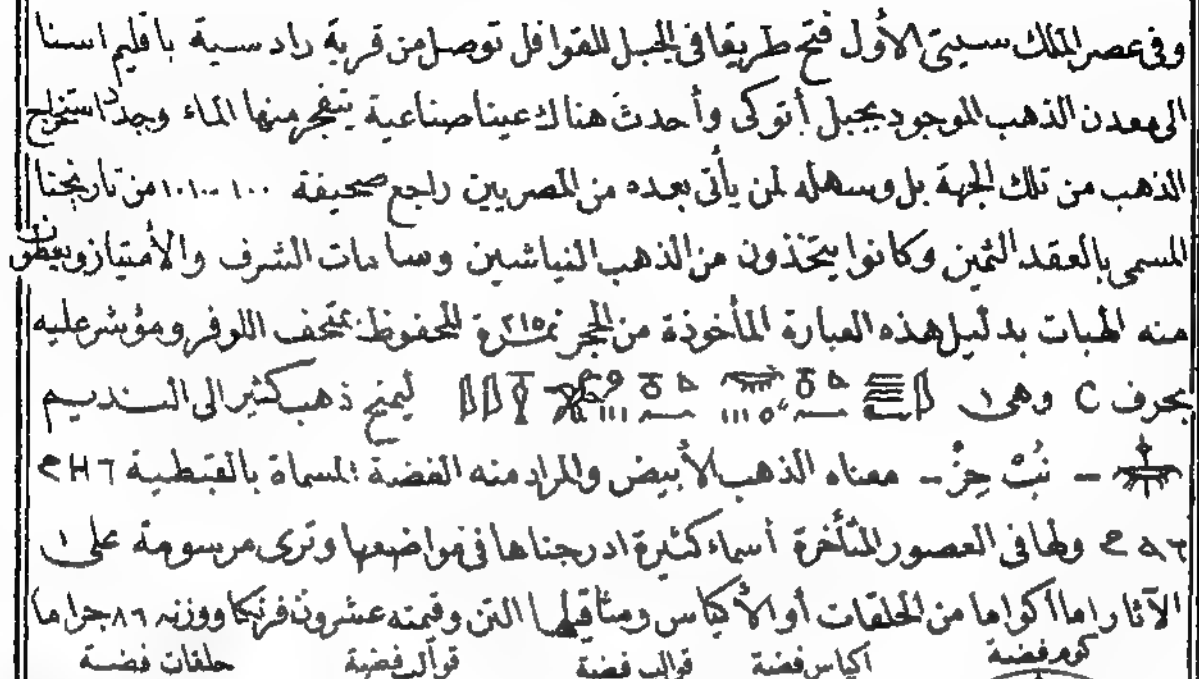 وفى عصر الملك سيتى الأول فتح طريقا فى الجبل للقوافل توصل من قرية رادسية باقليم اسنا
الى معدن الذهب الموجود بجبل أتوكى وأحدث هناك عينا صناعية ينفجر منها الماء وجد استخراج
الذهب من تلك الجهة بل وسهله لمن يأتى بعده من المصريين راجع صحيفة ١٠٠-١٠١ من تاريخنا
المسمى بالعقد الثمين وكانوا يتخذون من الذهب النياشين وسامات الشرف والأمتياز ويعطون
منه الهبات بدليل هذه العبارة المأخوذة من الحجر نمرة ٢١٥ المحفوظ بمتحف اللوفر ومؤشر عليه
بحرف C وهى ليمنح ذهب كثير الى النديم
– نُبْ حِزْ – معناه الذهب الأبيض والمراد منه الفضة المسماة بالقبطية
ولها فى العصور المتأخرة أسماء كثيرة ادرجناها فى مواضعها وترى مرسومة على
الآثار اما أكواما من الحلقات أو الأكياس ومثاقيلها التن وقيمته عشرون فرنكا ووزنه ٨٦ جراما
كوم فضة أكياس فضة قوالب فضة قوالب فضية حلقات فضة